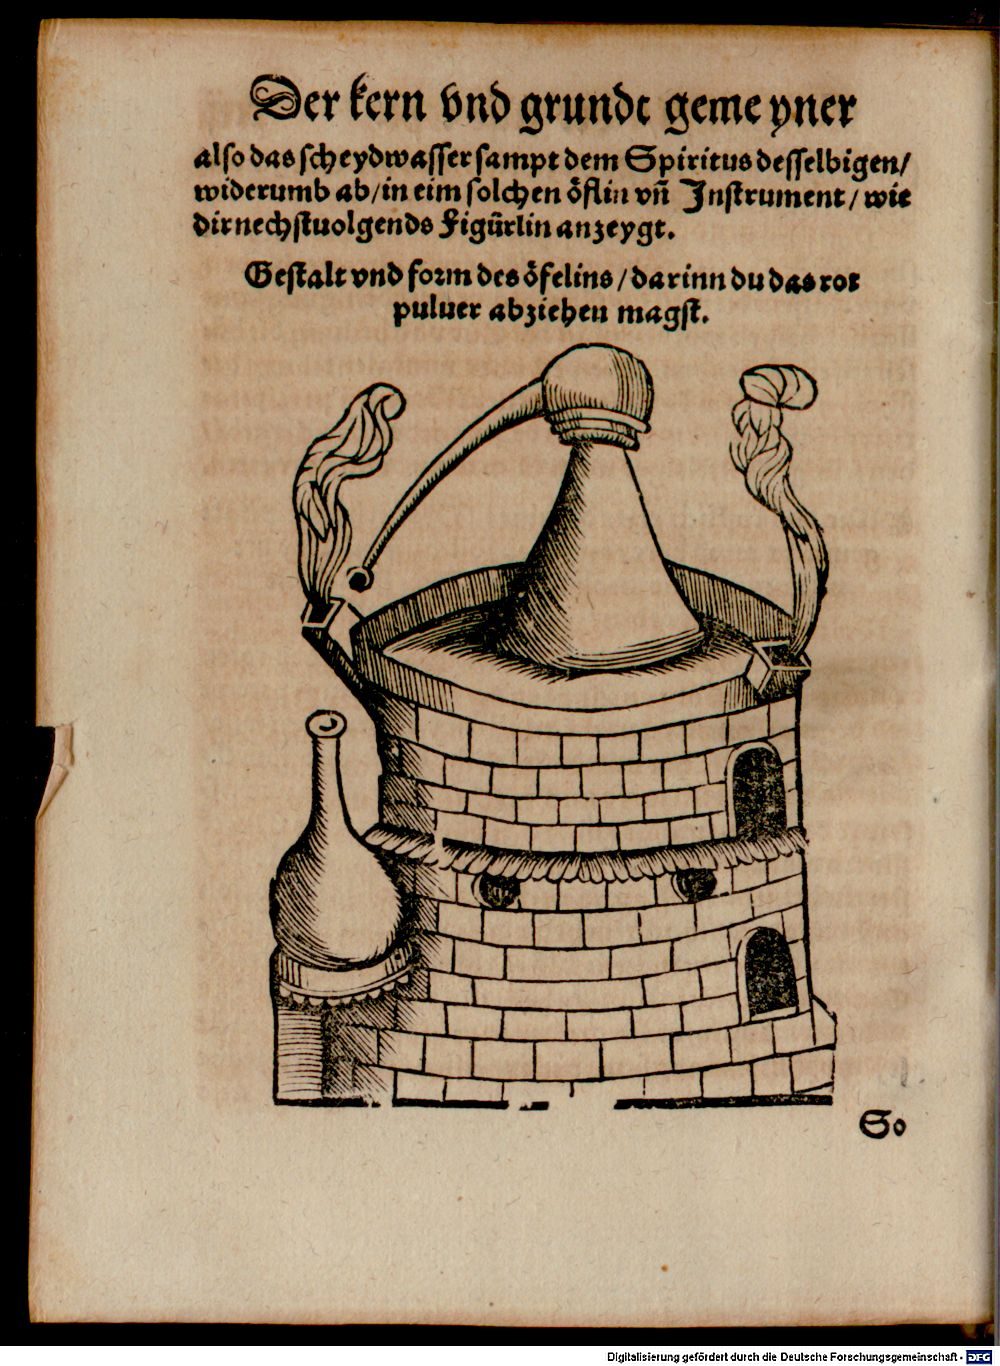 Der kern vnd grundt gemeyner
also das scheydwasser sampt dem Spiritus desselbigen/
widerumb ab/in eim solchen öflin vñ Instrument/ wie
dir nechstuolgends Figürlin anzeygt.
Gestalt vnd form des öfelins/darinn du das rot
puluer abziehen magst.
So
Digitalisierung gefördert durch die Deutsche Forschungsgemeinschaft - DFG